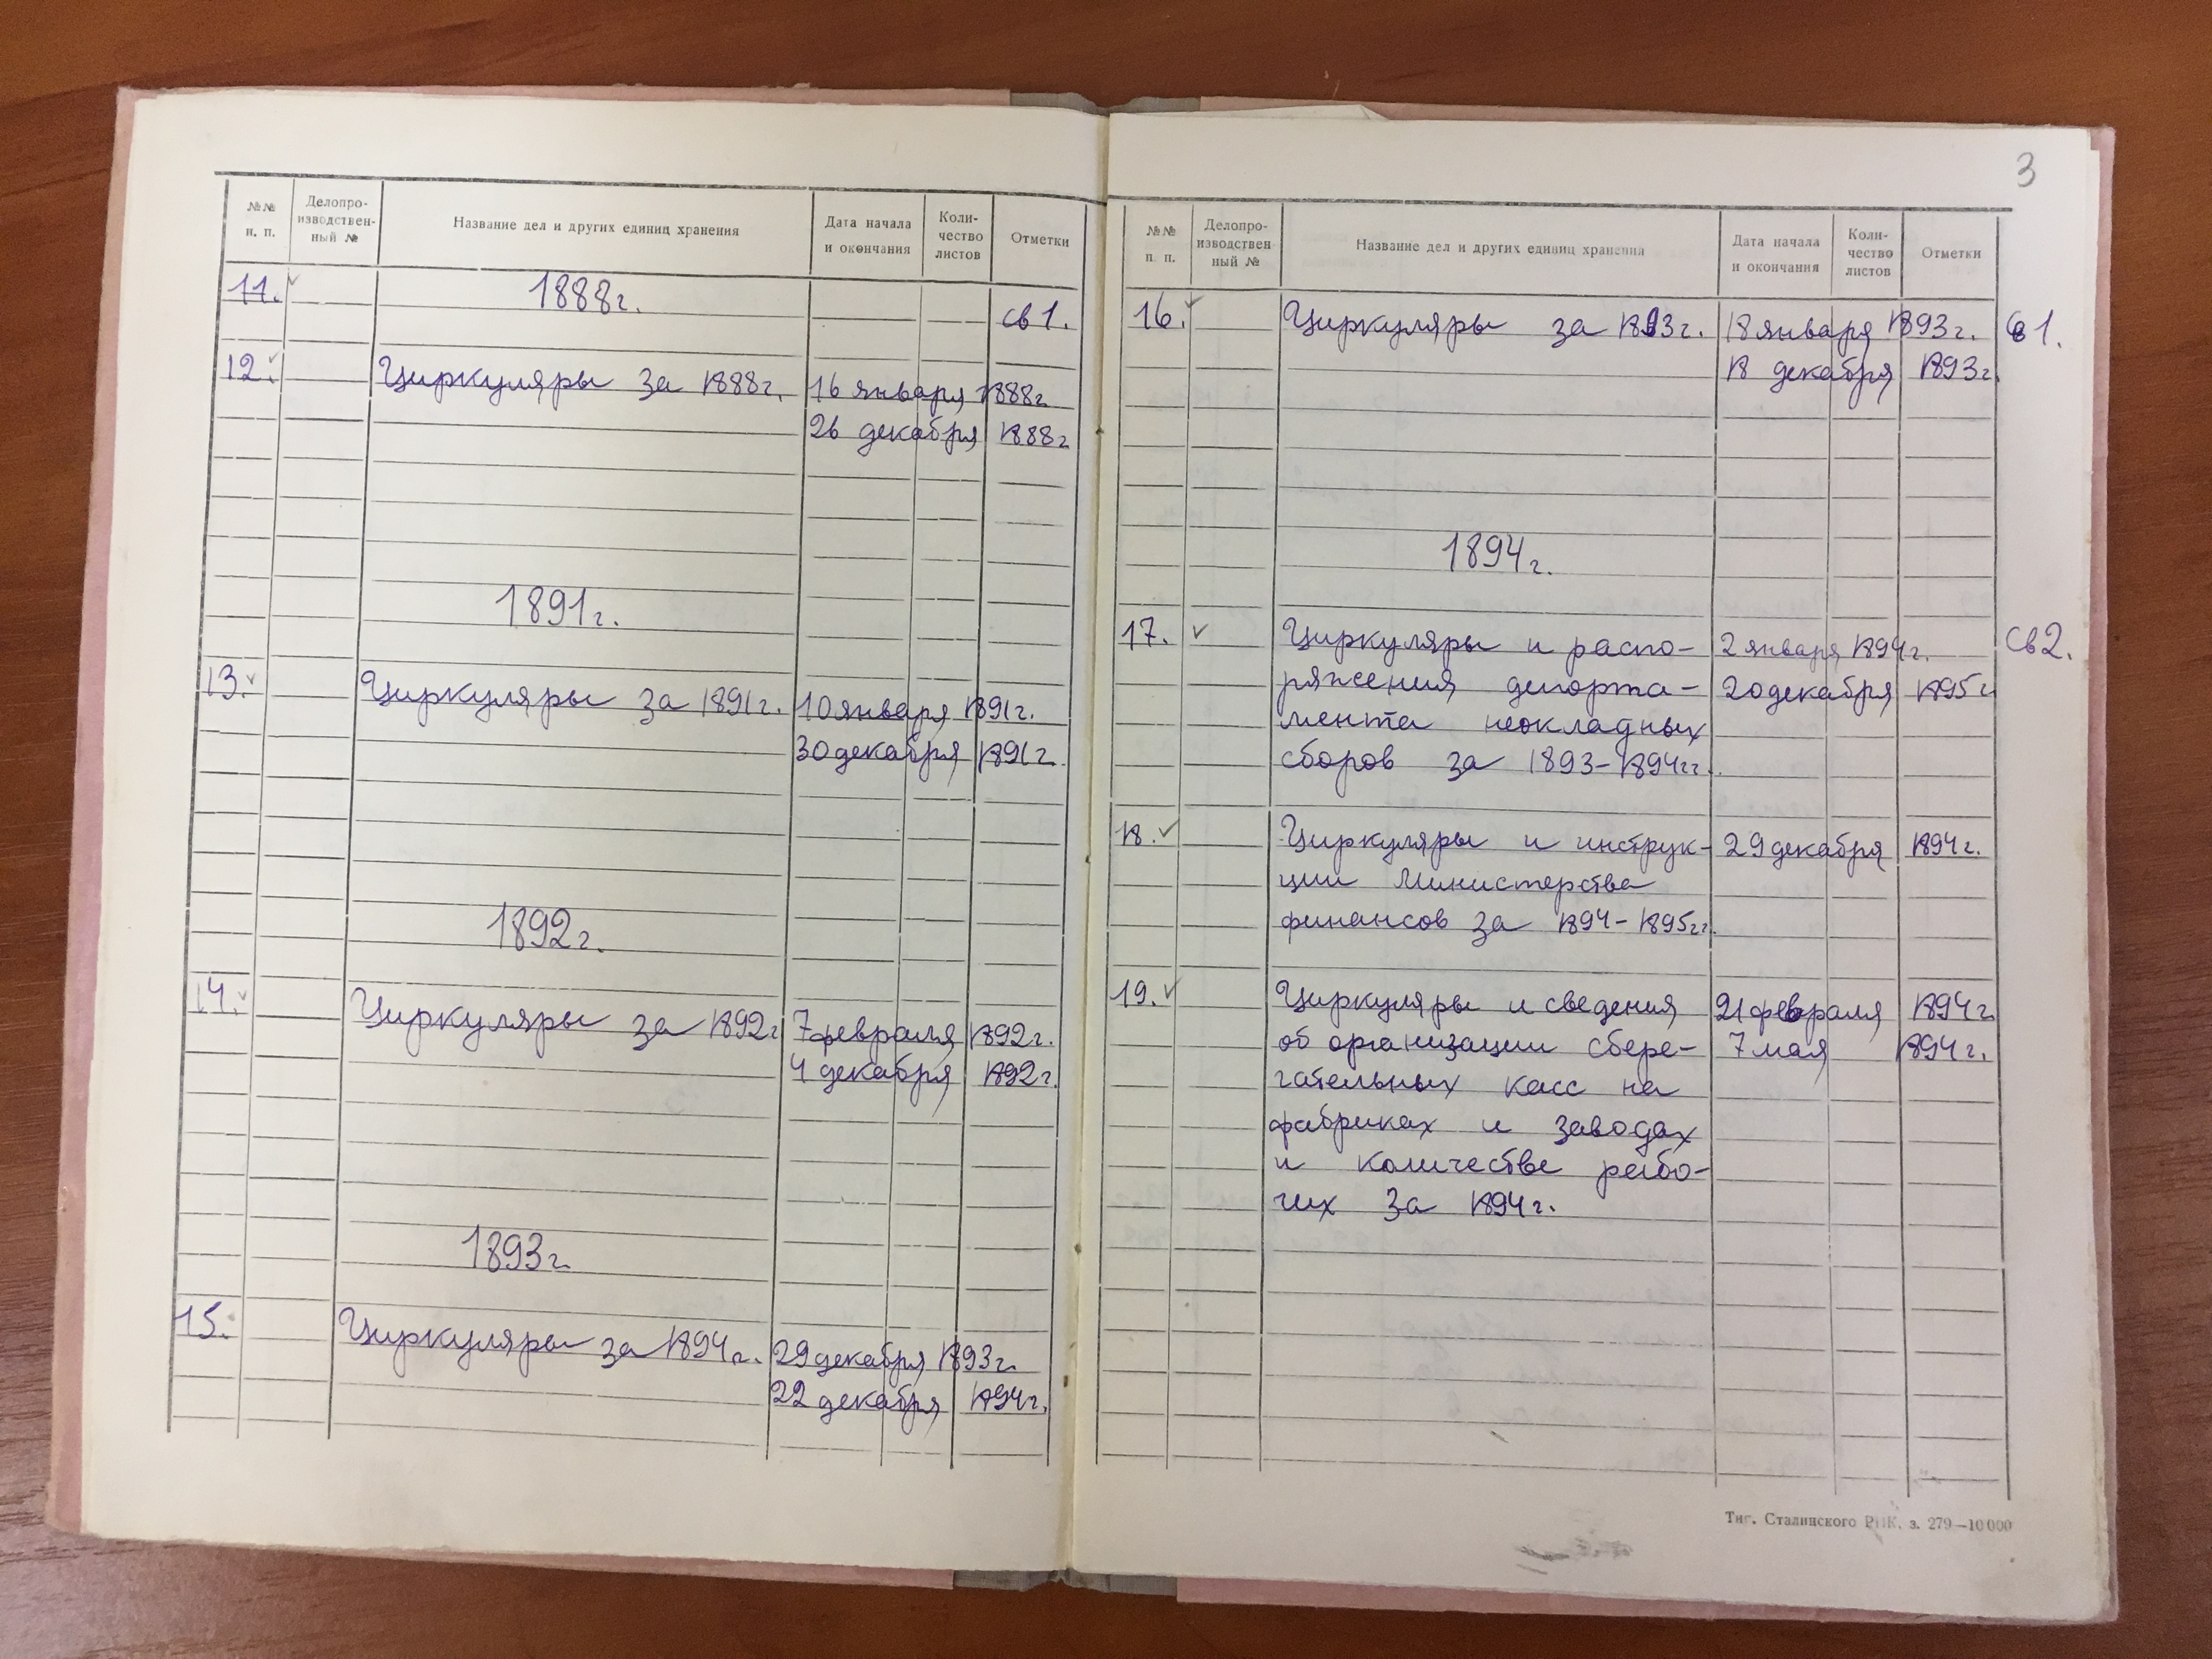 №№ п. п. Делопроизводствен-ный № Название дел и других единиц хранения Дата начала и окончания Коли-чество листов Отметки
11. 1888г. св 1.
12. Циркуляры за 1888г. 16 января 1888г.
26 декабря 1888г
1891г.
13. Циркуляры за 1891г. 10 января 1891г.
30 декабря 1891г.
1892г.
14. Циркуляры за 1892г 7 февраля 1892г.
4 декабря 1892г.
1893г.
15. Циркуляры за 1894г. 29 декабря 1893г.
22 декабря 1894г.
3
№№ п. п. Делопро-изводствен ный № Название дел и других единиц хранения Дата начала и окончания Коли-чество листов Отметки
16. Циркуляры за 1893г. 18 января 1893г. св 1.
18 декабря 1893г.
1894г.
17. Циркуляры и распо- 2 января 1894г. св 2.
ряжения департа- 20 декабря 1895г
мента неокладных
сборов за 1893-1894гг.
18. Циркуляры и инструк- 29 декабря 1894г.
ции Министерства
финансов за 1894-1895гг.
19. Циркуляры и сведения 21 февраля 1894г
об организации сбере- 7 мая 1894г.
гательных касс на
фабриках и заводах
и количестве рабо-
чих за 1894г.
Тип. Сталинского РПК, з. 279—10 000